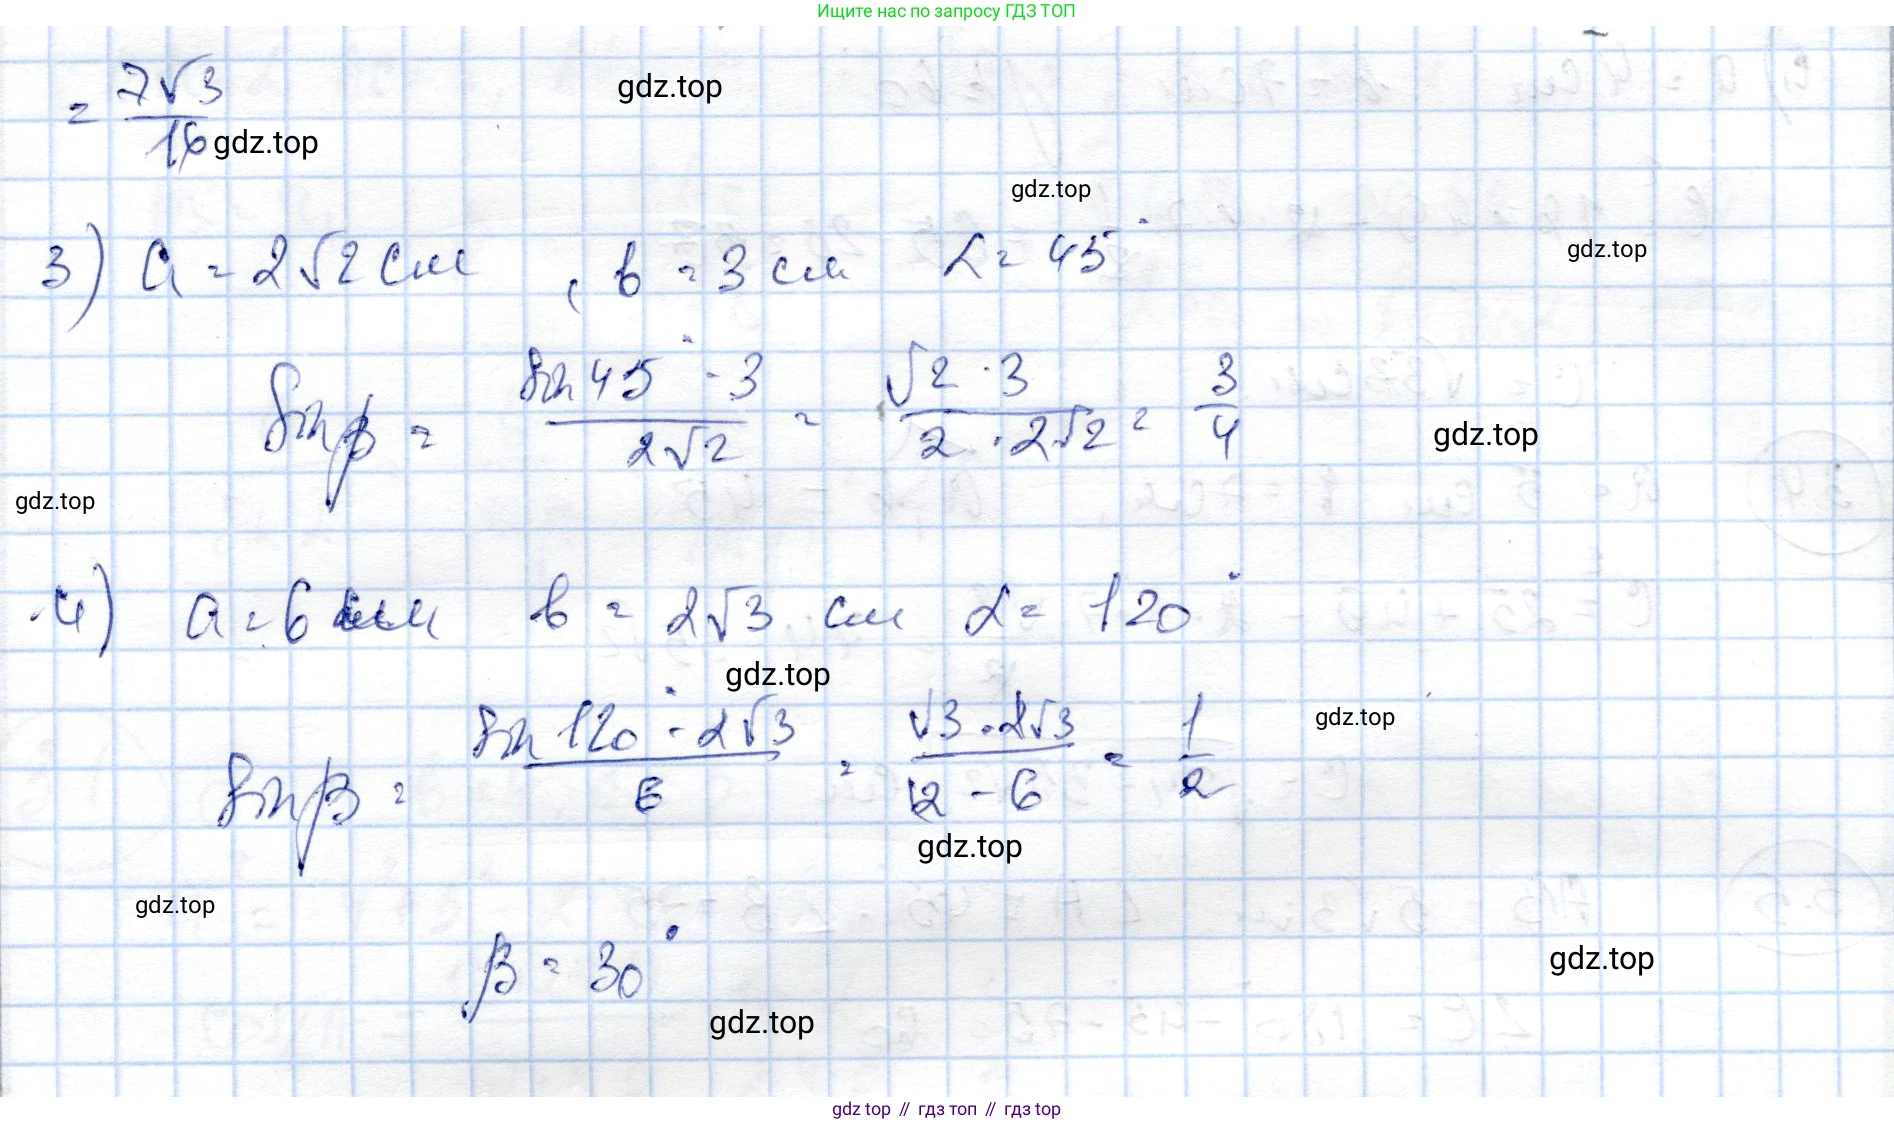 Ищите нас по запросу ГДЗ ТОП
= 7√3 / 16
gdz.top
gdz.top
gdz.top
3) a = 2√2 см, b = 3 см α = 45°
gdz.top
sin β = sin 45° · 3 / 2√2 = √2 · 3 / 2 · 2√2 = 3 / 4
gdz.top
gdz.top
4) a = 6 см b = 2√3 см α = 120°
gdz.top
sin β = sin 120° · 2√3 / 6 = √3 · 2√3 / 2 · 6 = 1 / 2
gdz.top
gdz.top
gdz.top
β = 30°
gdz.top
gdz.top
gdz top // гдз топ // гдз top